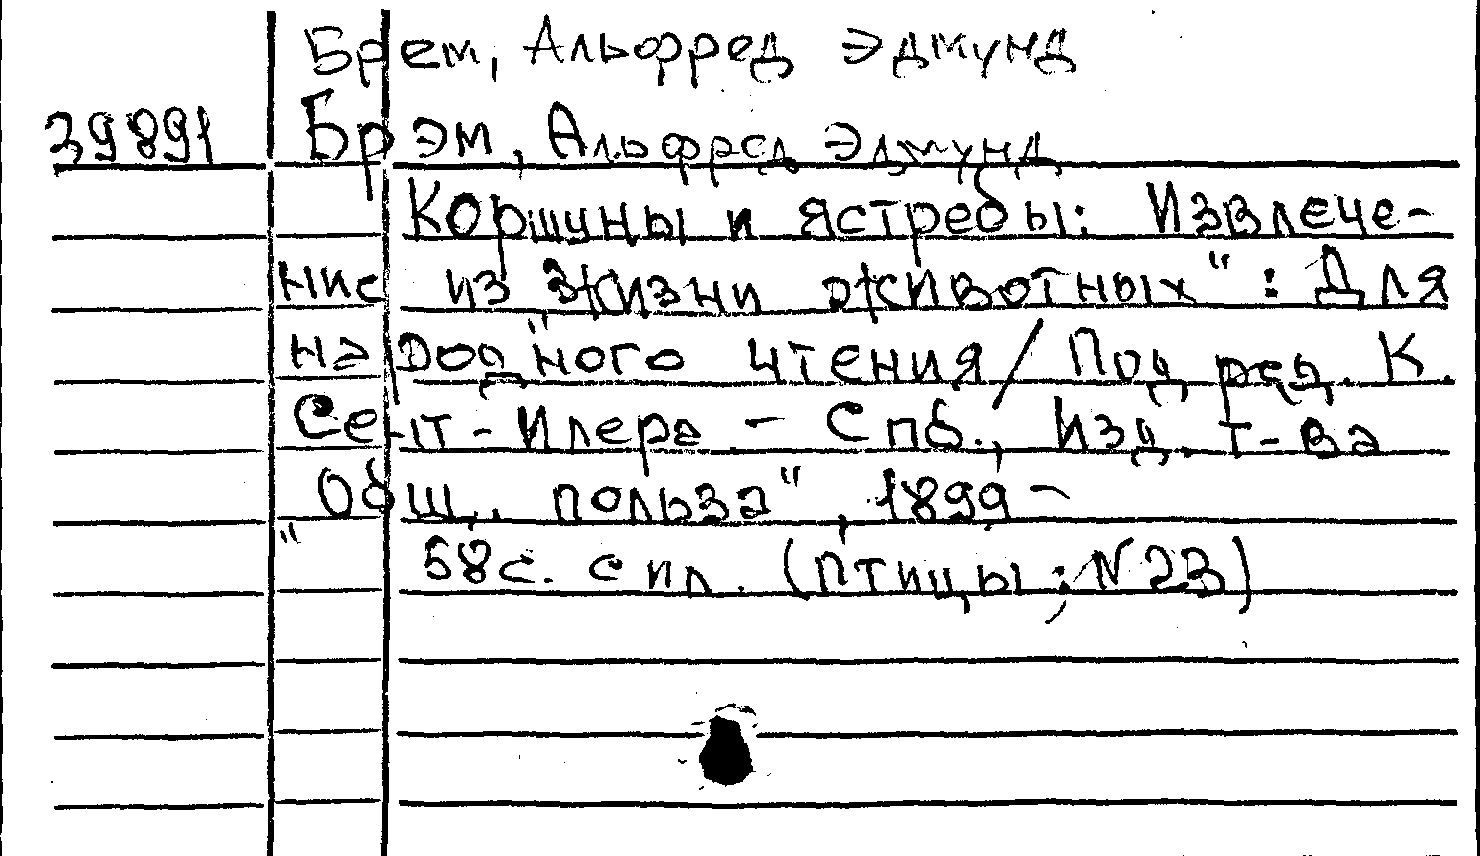 Брем, Альфред Эдмунд
39891 Брэм, Альфред Эдмунд
Коршуны и ястребы: Извлече-
ние из "Жизни животных" : Для
народного чтения / Под ред. К.
Сент-Илера – Спб., Изд. т-ва
"Общ. польза", 1899 –
58с. с ил. (птицы ; N23)